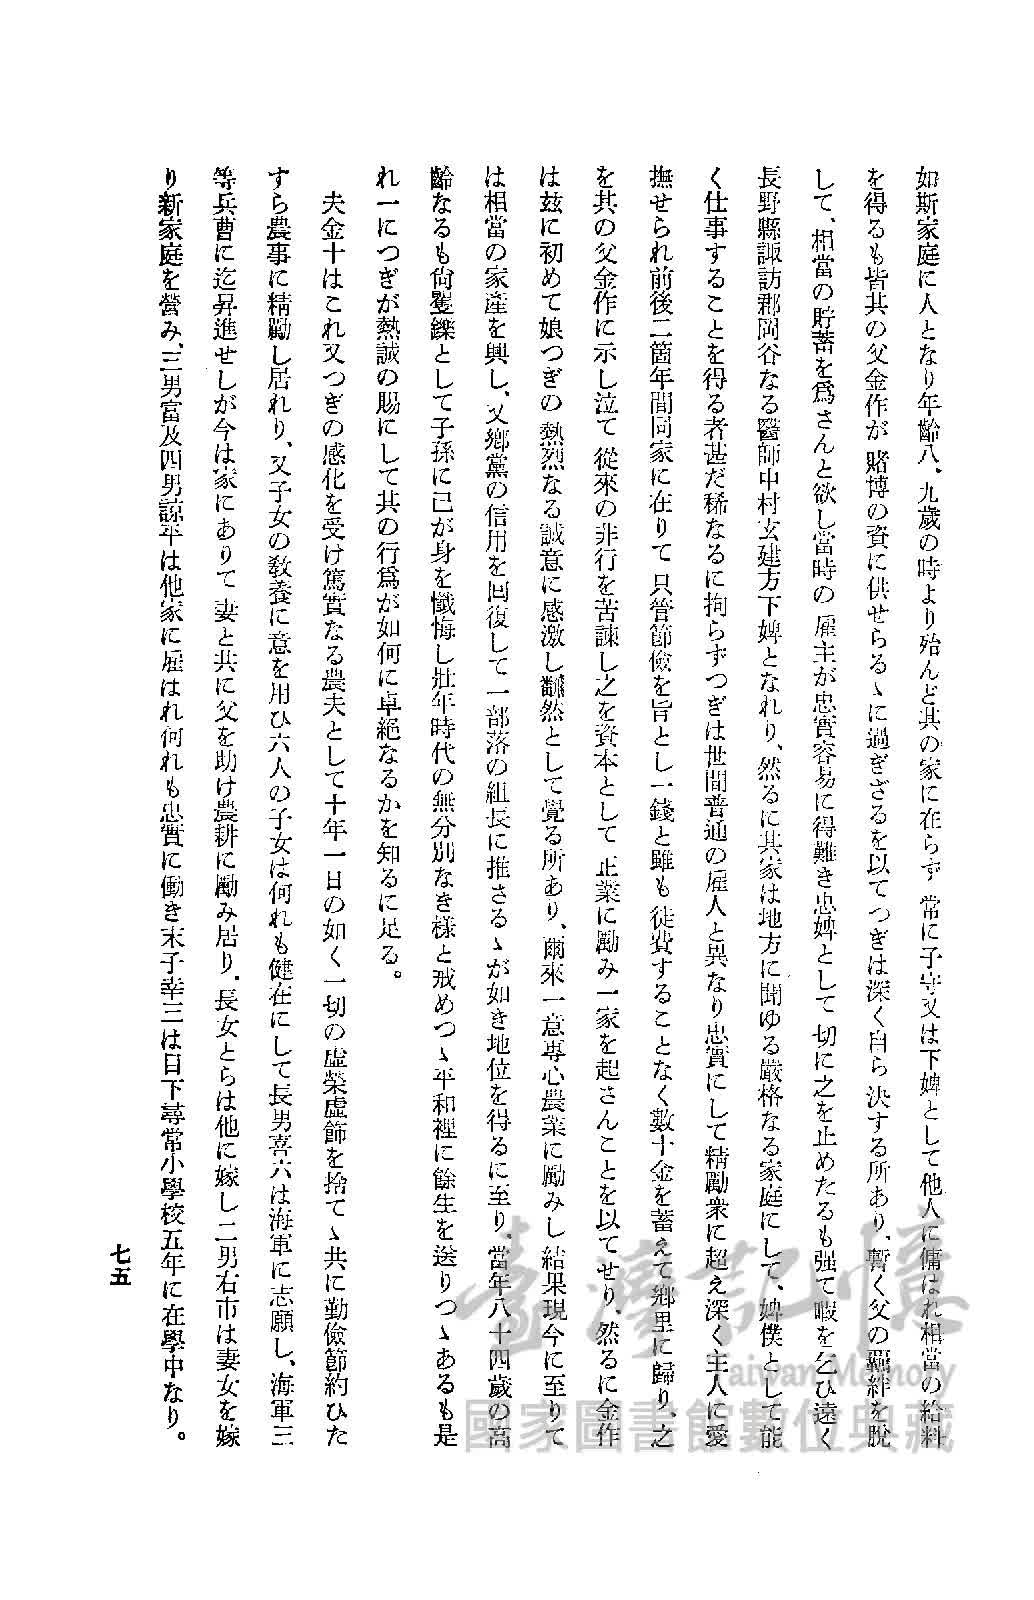 如斯家庭に人となり年齡八、九歳の時より殆んど其の家に在らず常に子守又は下婢として他人に傭はれ相當の給料
を得るも皆其の父金作が賭博の資に供せらるゝに過ぎざるを以てつぎは深く自ら決する所あり、暫く父の羈絆を脫
して、相當の貯蓄を爲さんと欲し當時の雇主が忠實容易に得難き忠婢として切に之を止めたるも强て暇を乞ひ遠く
長野縣諏訪郡岡谷なる醫師中村玄建方下婢となれり、然るに其家は地方に聞ゆる嚴格なる家庭にして、婢僕として能
く仕事することを得る者甚だ稀なるに拘らずつぎは世間普通の雇人と異なり忠實にして精勵衆に超え深く主人に愛
撫せられ前後二箇年間同家に在りて只管節儉を旨とし一錢と雖も徒費することなく數十金を蓄えて鄕里に歸り、之
を其の父金作に示し泣て從來の非行を苦諫し之を資本として正業に勵み一家を起さんことを以てせり、然るに金作
は玆に初めて娘つぎの熱烈なる誠意に感激し飜然として覺る所あり、爾來一意專心農業に勵みし結果現今に至りて
は相當の家產を興し、又鄕黨の信用を回復して一部落の組長に推さるゝが如き地位を得るに至り、當年八十四歳の高
齡なるも尙矍鑠として子孫に己が身を懺悔し壯年時代の無分別なき樣と戒めつゝ平和裡に餘生を送りつゝあるも是
れ一につぎが熱誠の賜にして其の行爲が如何に卓絕なるかを知るに足る。
夫金十はこれ又つぎの感化を受け篤實なる農夫として十年一日の如く一切の虛榮虛飾を捨てゝ共に勤儉節約ひた
すら農事に精勵し居れり、又子女の敎養に意を用ひ六人の子女は何れも健在にして長男喜六は海軍に志願し、海軍三
等兵曹に迄昇進せしが今は家にありて妻と共に父を助け農耕に勵み居り、長女とらは他に嫁し二男右市は妻女を嫁
り新家庭を營み、三男富及四男諒平は他家に雇はれ何れも忠實に働き末子幸三は目下尋常小學校五年に在學中なり。
七五
臺灣記憶
Taiwan Memory
國家圖書館數位典藏